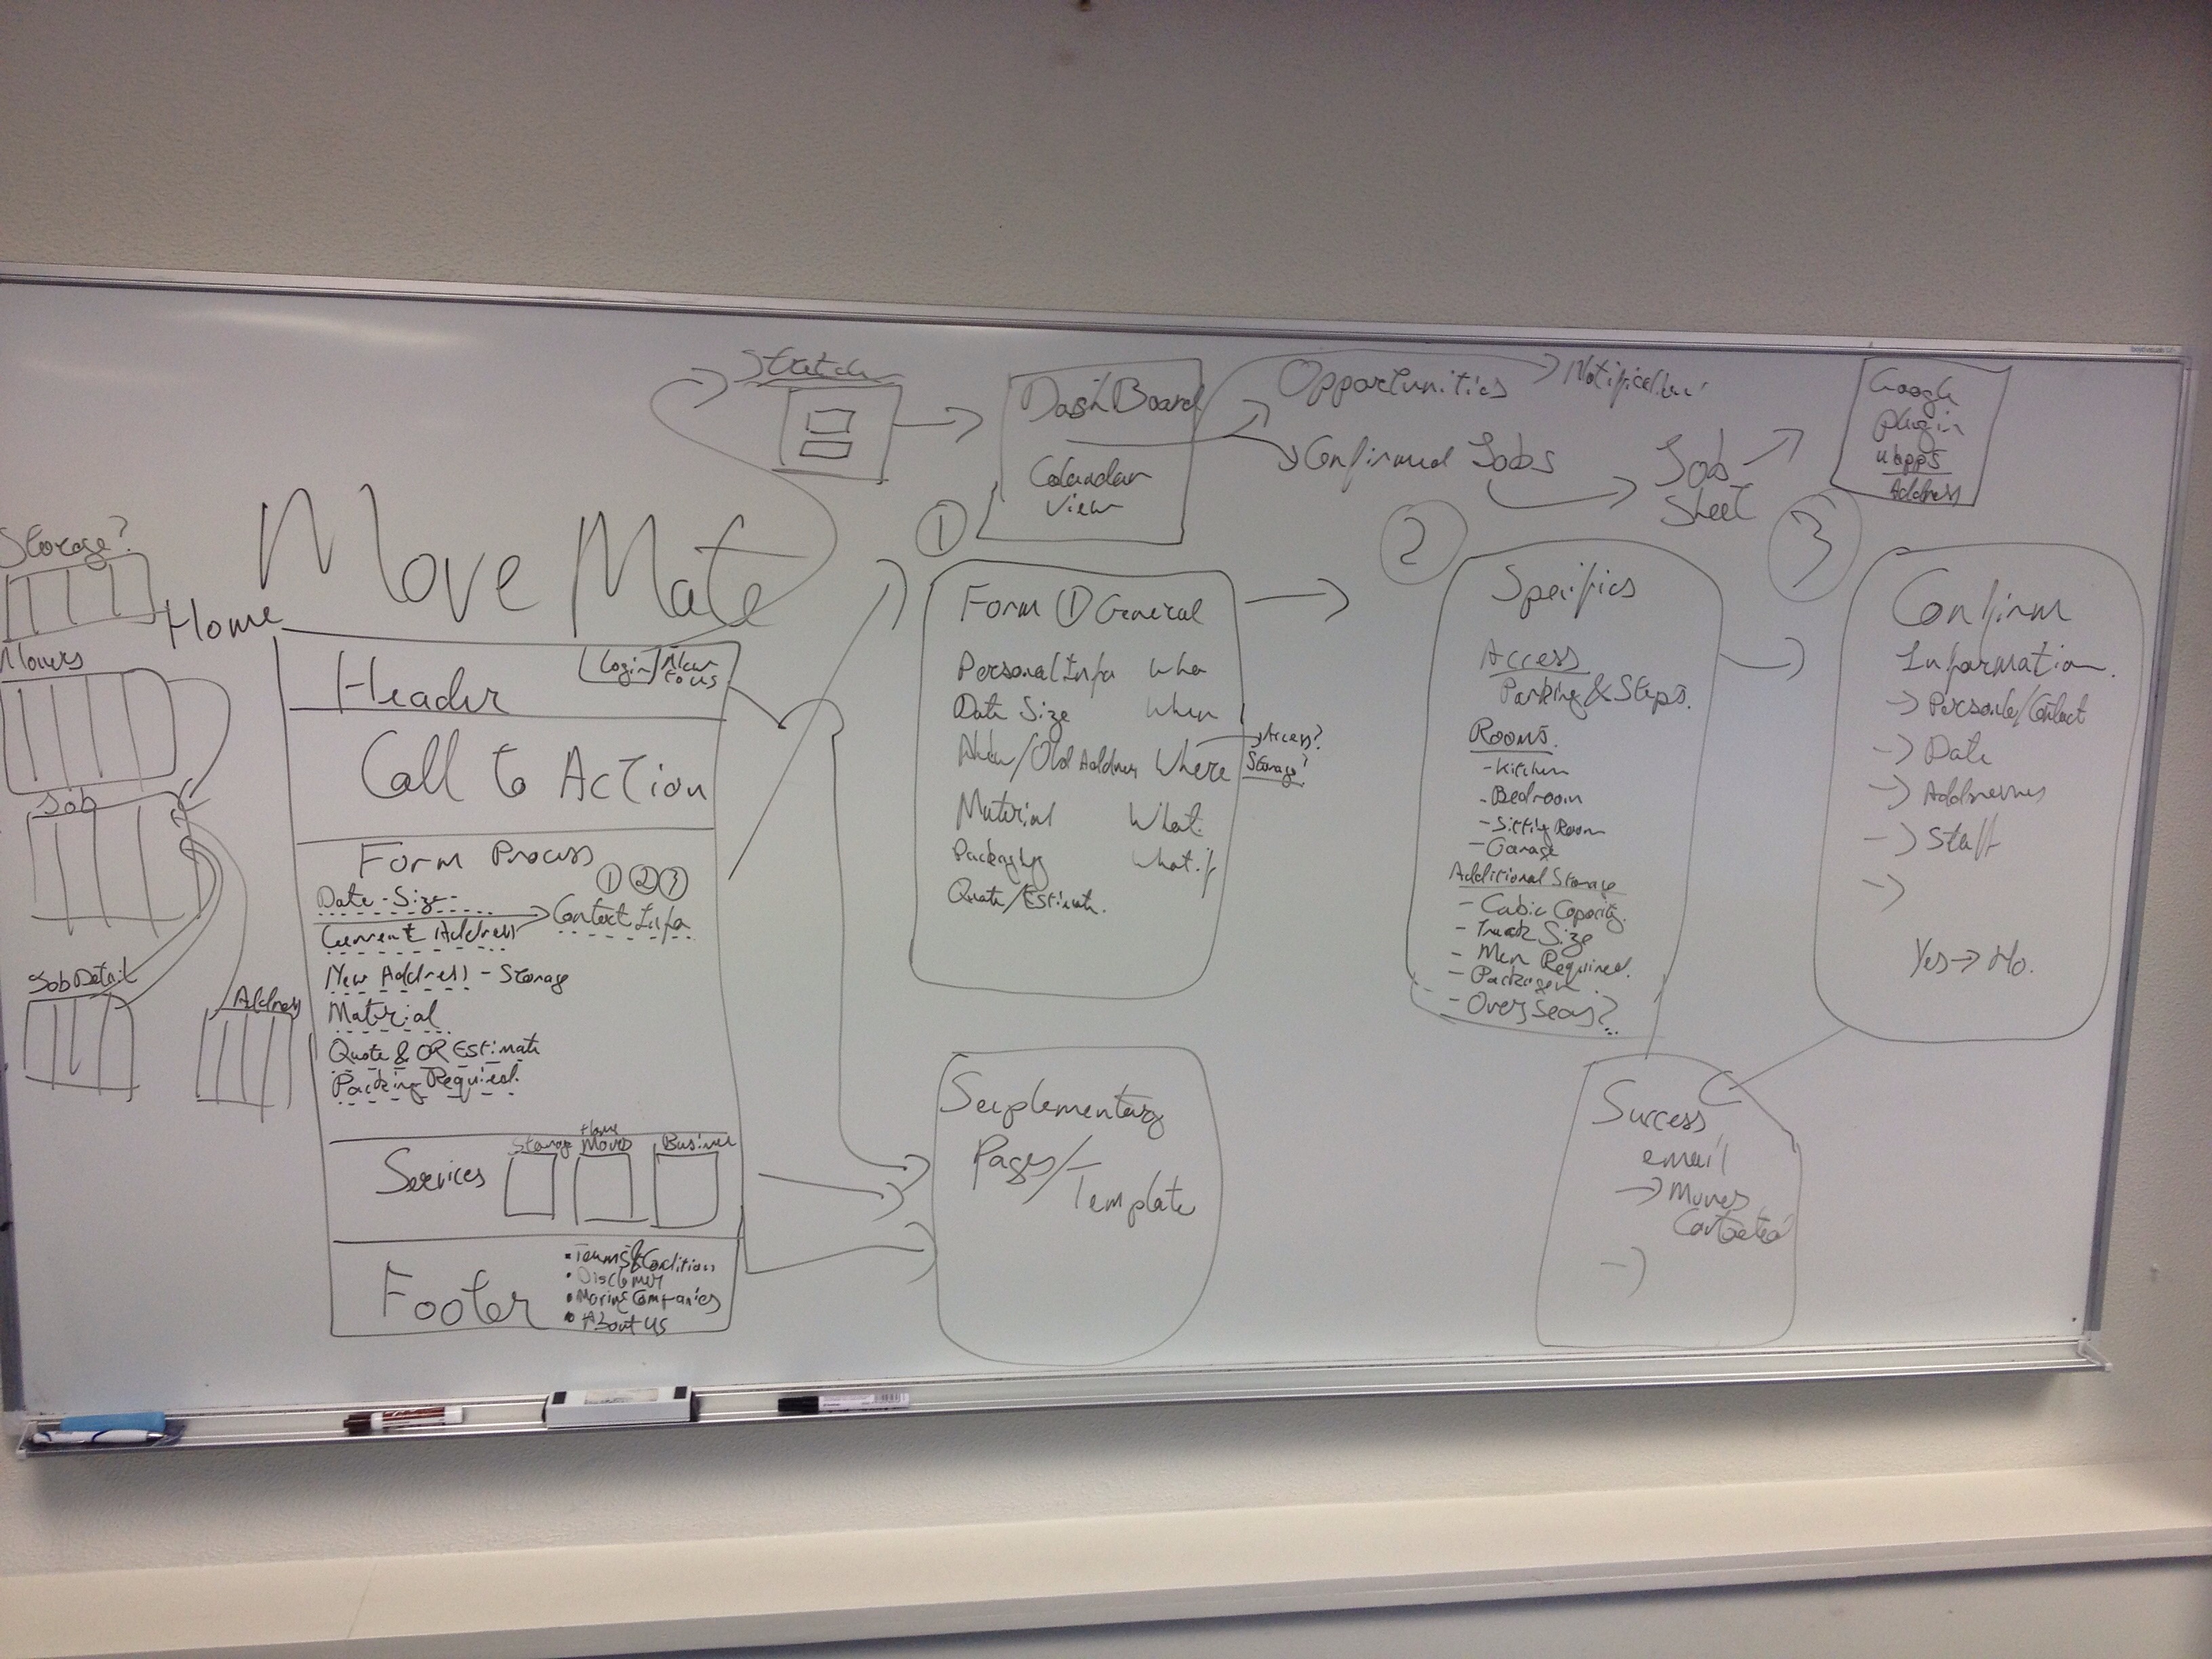 Move Mate
Storage?
Movers
Job
Job Detail
Address
Home
Header
Login
Call to Action
Form Process
① ② ③
Date - Size
Contact Info
Current Address
New Address - Storage
Material
Quote & OR Estimate
Packing Required.
Services
Storage
Home
Moves
Business
Footer
• Terms & Condition
• Disclamer
• Moving Companies
• About Us
DashBoard
Calandar
View
Opportunities
Confirmed Jobs
Job
Sheet
Google
Plugin
Address
①
Form ① General
Personal Info Who
Date Size When
New/Old Address Where
Access?
Storage?
Material What
Packaging What if
Quote/Estimate.
②
Specifics
Access
Parking & Steps.
Rooms.
- Kitchen
- Bedroom
- Sitting Room
- Garage
Additional Storage
- Cubic Capacity.
- Truck Size
- Men Required.
- Over Seas?
③
Confirm
Information.
Date
Staff
Yes → No.
Suplementary
Pages/
Template
Success
email